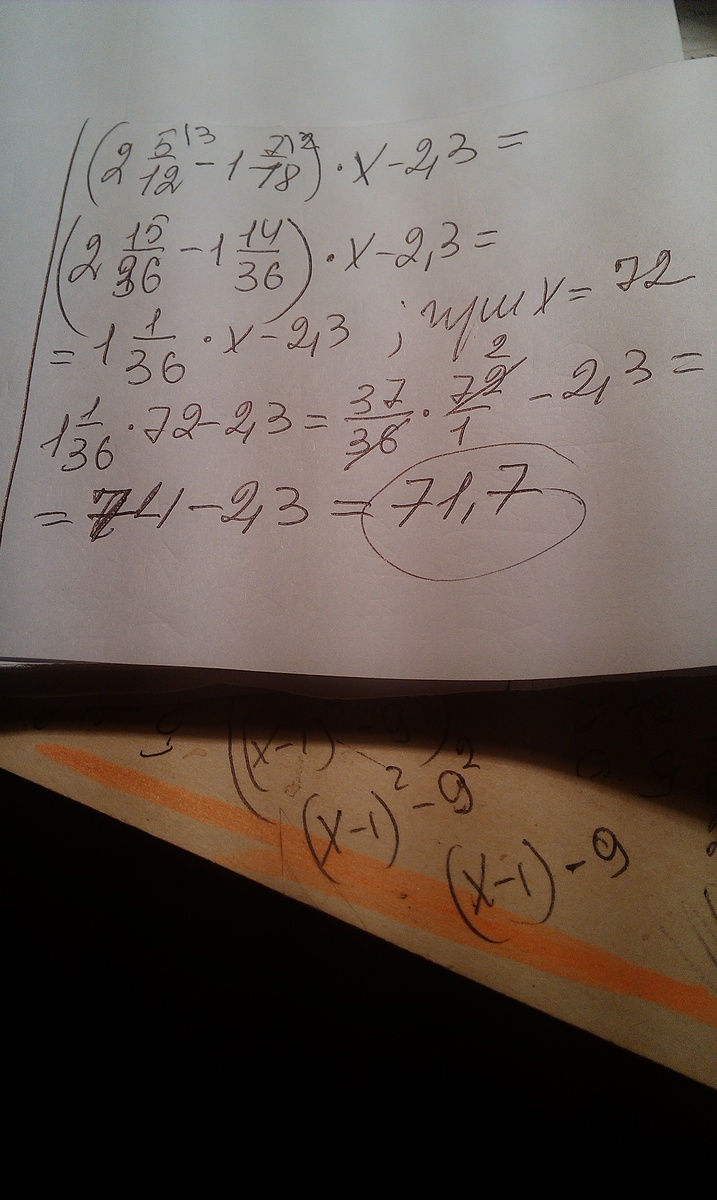 (2 5/12 |3 - 1 7/18 |2) · x - 2,3 =
(2 15/36 - 1 14/36) · x - 2,3 =
= 1 1/36 · x - 2,3 ; при x = 72
1 1/36 · 72 - 2,3 = 37/36 · 72/1 2 - 2,3 =
= 74 - 2,3 = 71,7
(x-1)
(x-1)² - 9²
(x-1) - 9